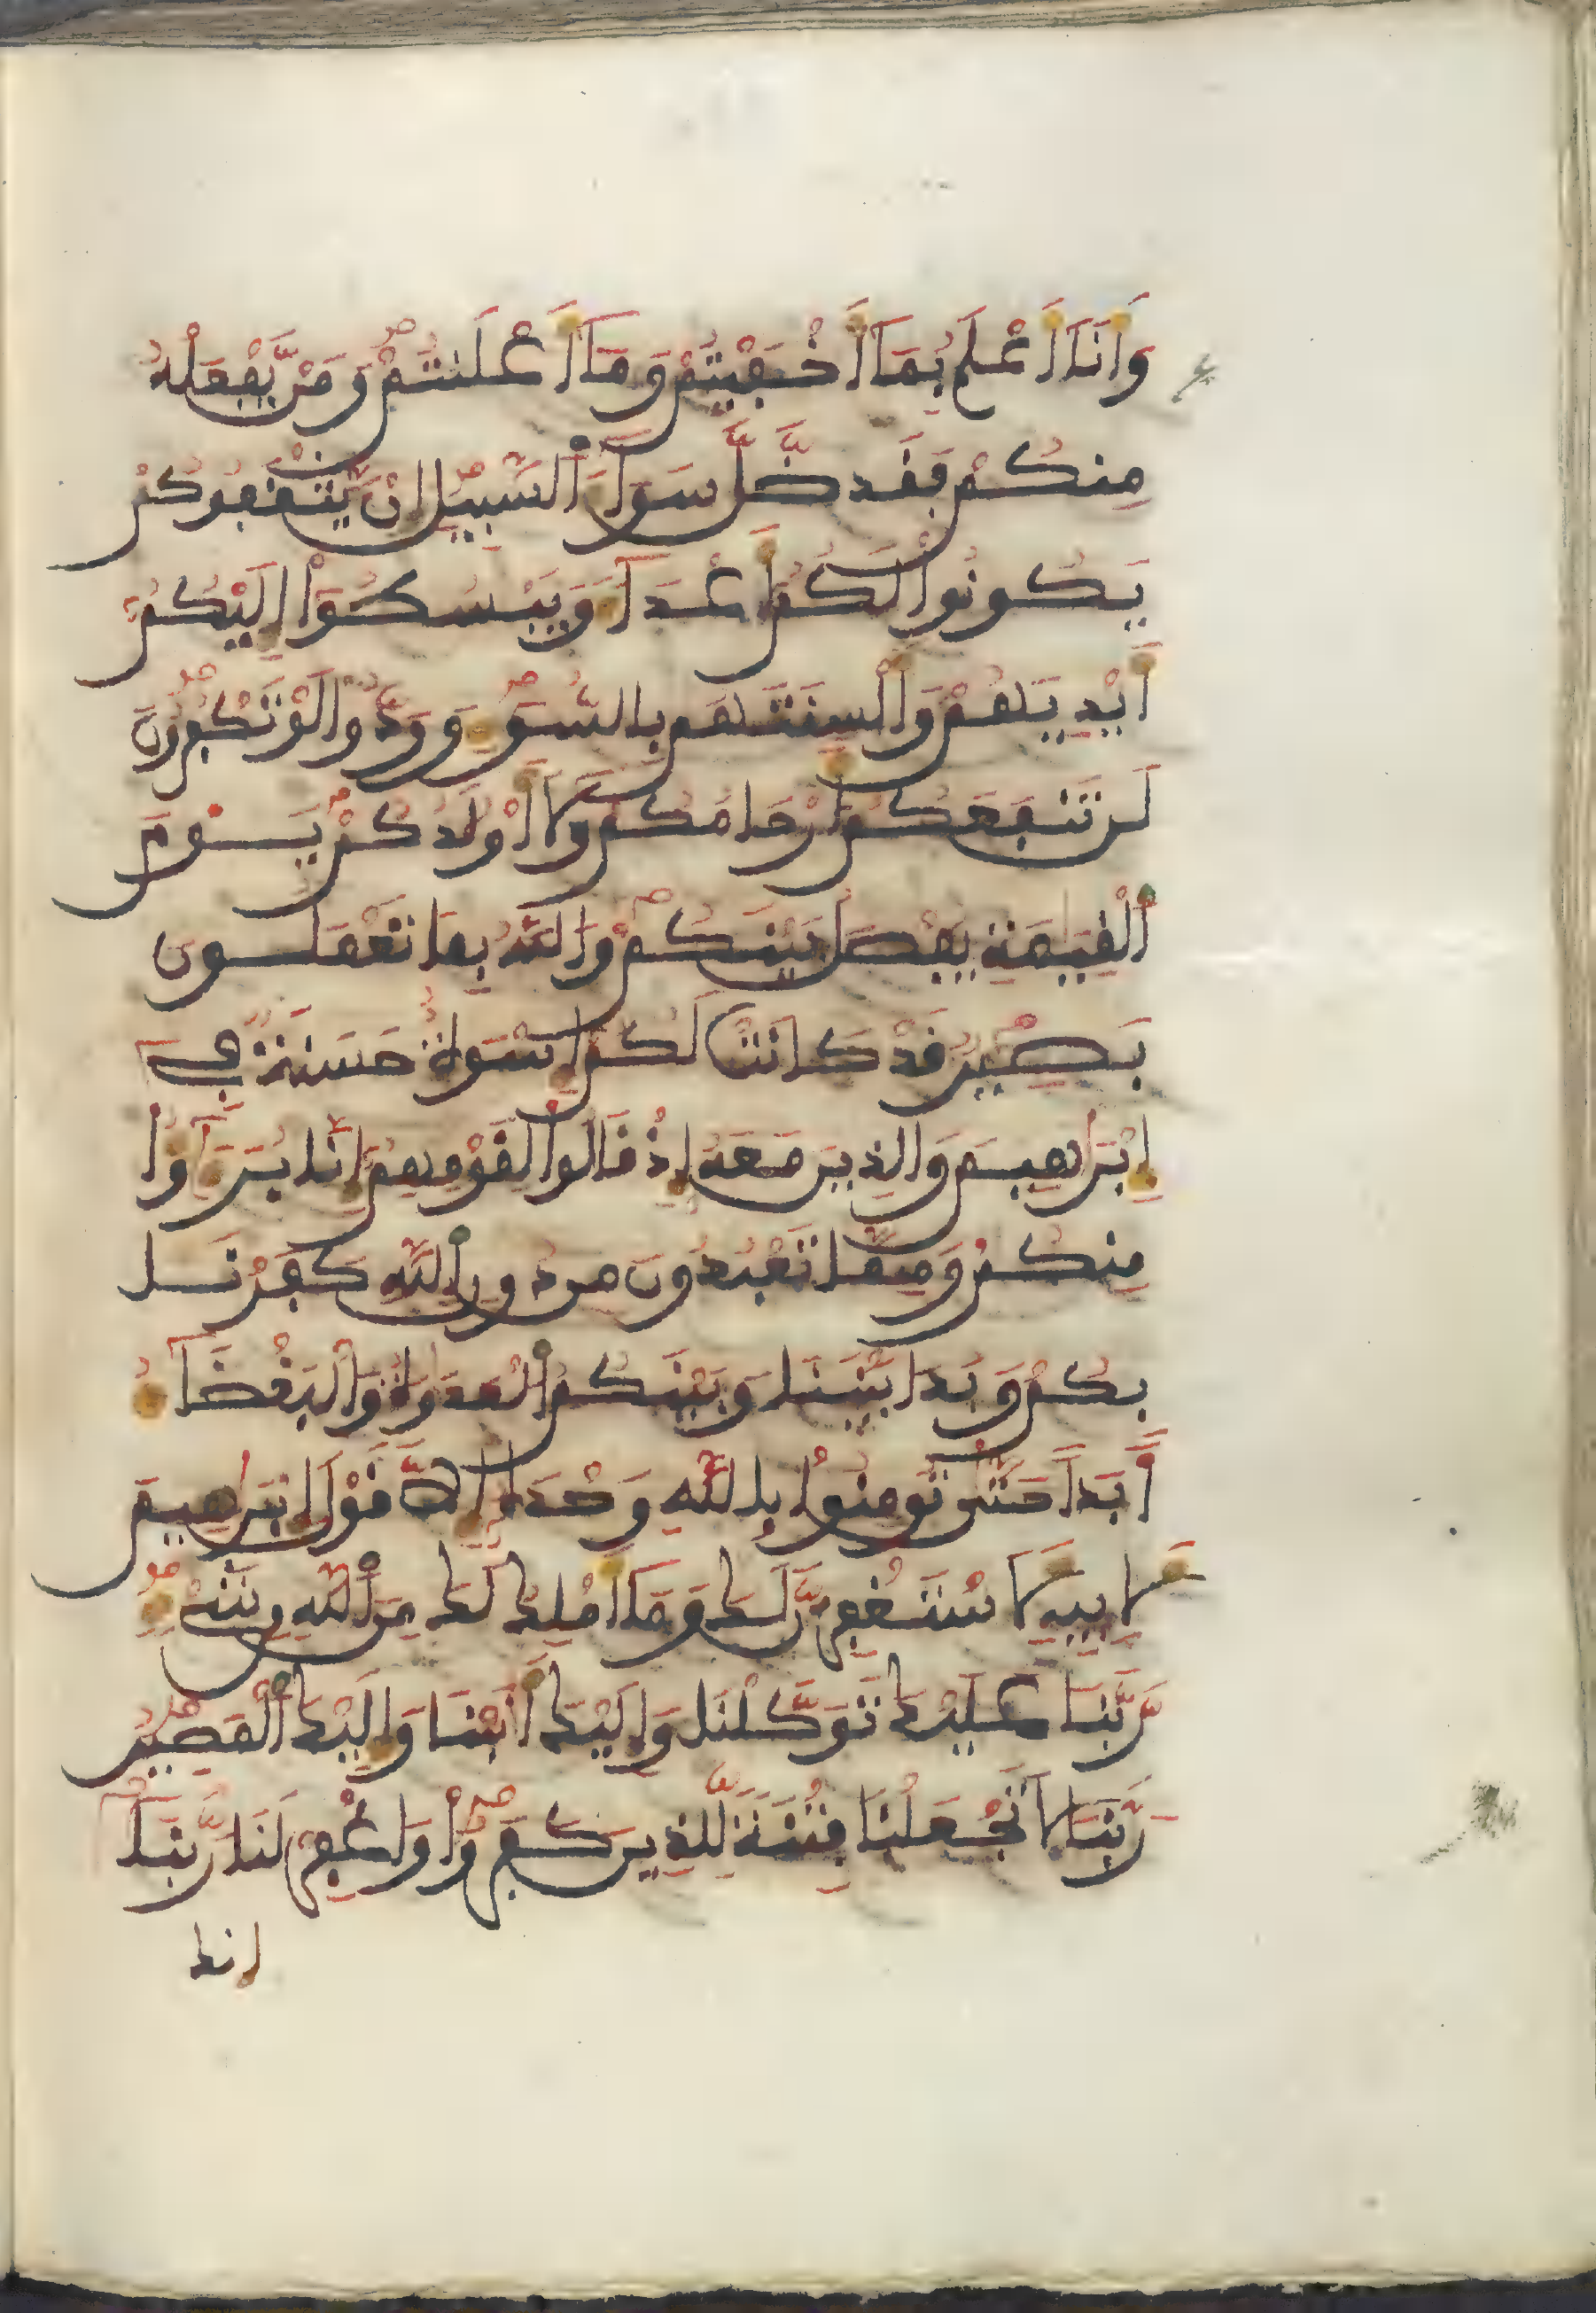 وَأَنَا أَعْلَمُ بِمَا أَخْفَيْتُمْ وَمَا أَعْلَنتُمْ وَمَنْ يَّفْعَلْهُ
مِنكُمْ فَقَد ضَّلَّ سَوَآءَ اَ۬لسَّبِيلِ إِنْ يَّثْقَفُوكُمْ
يَكُونُواْ لَكُمُ أَعْدَآءً وَيَبْسُطُوٓاْ إِلَيْكُمُ
أَيْدِيَهُمْ وَأَلْسِنَتَهُم بِالسُّوٓءِ وَوَدُّواْ لَوْ تَكْفُرُونَ
لَن تَنفَعَكُمُ أَرْحَامُكُمْ وَلَا أَوْلَٰدُكُمْ يَوْمَ
اَ۬لْقِيَٰمَةِ يُفْصَلُ بَيْنَكُمْ وَاللَّهُ بِمَا تَعْمَلُونَ
بَصِيرٌ قَدْ كَانَتْ لَكُمُ إِسْوَةٌ حَسَنَةٌ فِي
إِبْرَٰهِيمَ وَالذِينَ مَعَهُ إِذْ قَالُواْ لِقَوْمِهِمُ إِنَّا بُرَءَٰٓؤُاْ
مِنكُمْ وَمِمَّا تَعْبُدُونَ مِن دُونِ اِ۬للَّهِ كَفَرْنَا
بِكُمْ وَبَدَا بَيْنَنَا وَبَيْنَكُمُ اُ۬لْعَدَٰوَةُ وَالْبَغْضَآءُ
أَبَداً حَتَّىٰ تُومِنُواْ بِاللَّهِ وَحْدَهُ إِلَّا قَوْلَ إِبْرَٰهِيمَ
لِأَبِيهِ لَأَسْتَغْفِرَنَّ لَكَ وَمَا أَمْلِكُ لَكَ مِنَ اَ۬للَّهِ مِن شَيْءٍ
رَّبَّنَا عَلَيْكَ تَوَكَّلْنَا وَإِلَيْكَ أَنَبْنَا وَإِلَيْكَ اَ۬لْمَصِيرُ
رَبَّنَا لَا تَجْعَلْنَا فِتْنَةً لِّلذِينَ كَفَرُواْ وَاغْفِرْ لَنَا رَبَّنَا
إنك